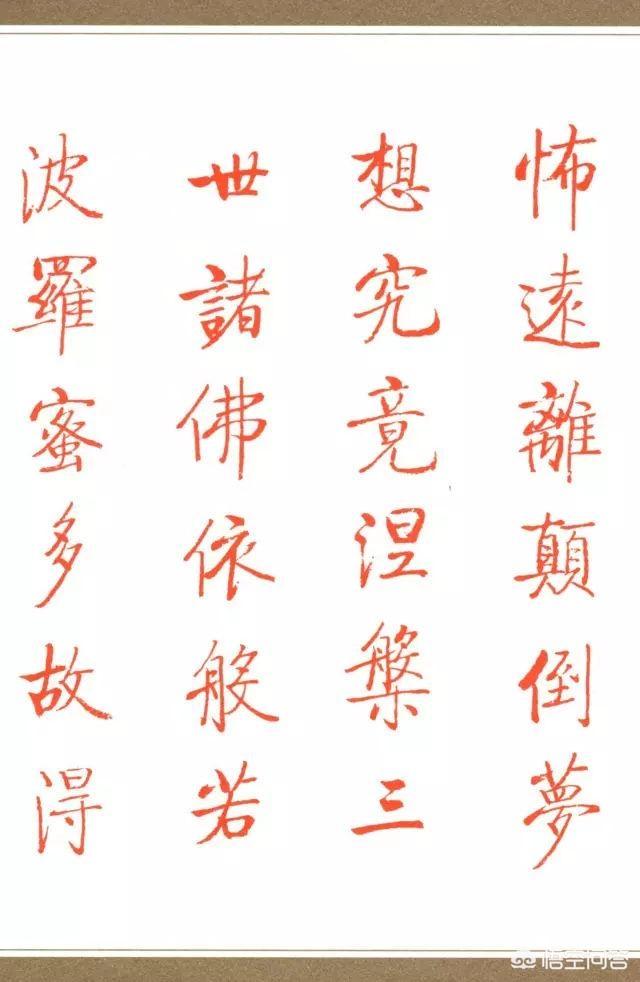 怖遠離顛倒夢
想究竟涅槃三
世諸佛依般若
波羅蜜多故得
悟空问答